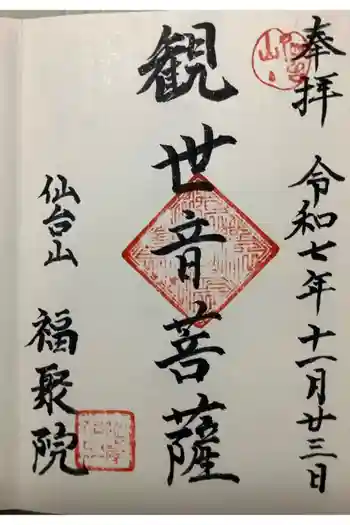 奉拝 令和七年十一月廿三日
観世音菩薩
仙台山 福聚院